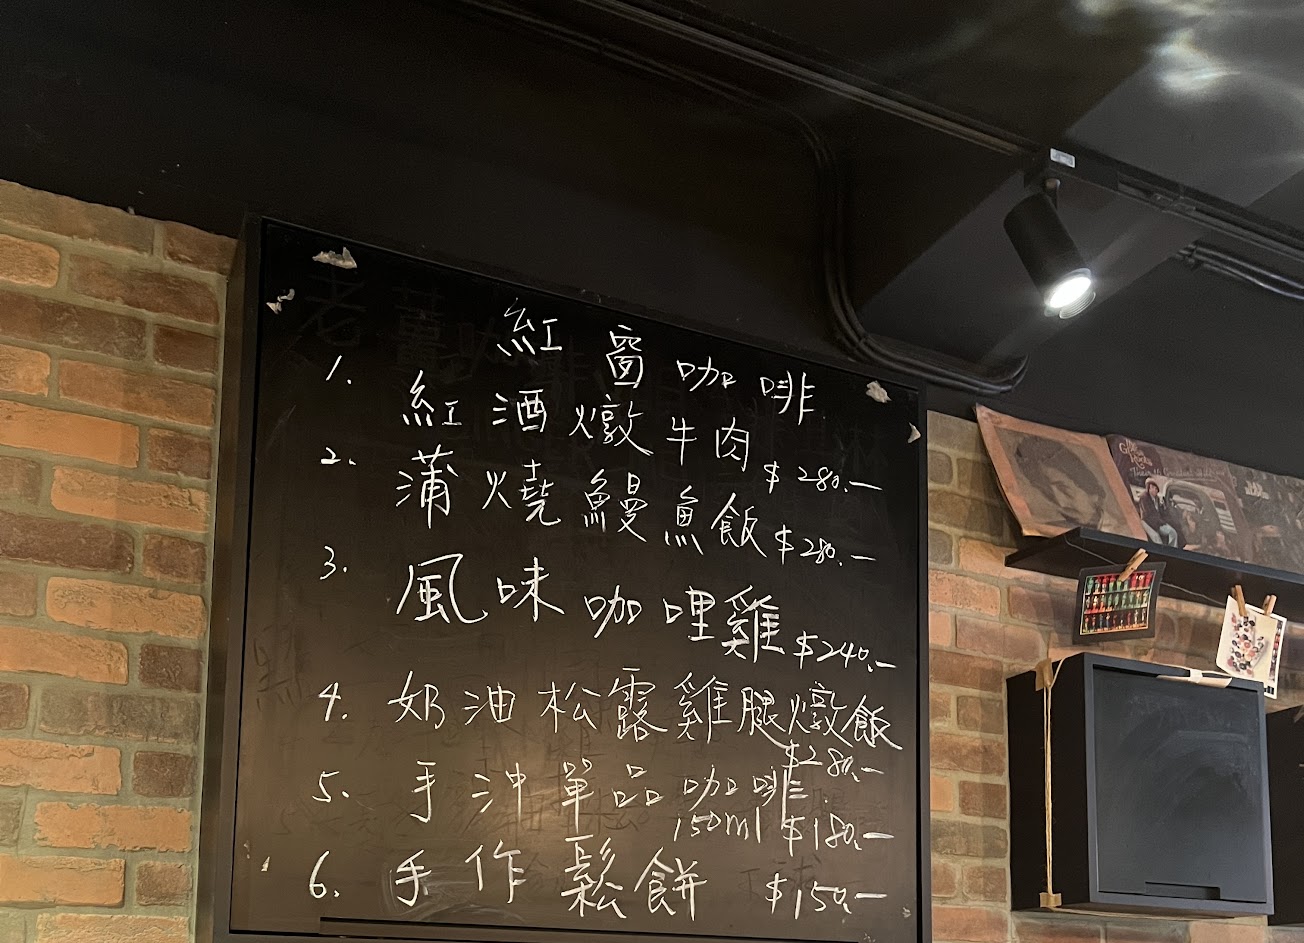 紅窗咖啡
1. 紅酒燉牛肉 $280.—
2. 蒲燒鰻魚飯 $280.—
3. 風味咖哩雞 $240.—
4. 奶油松露雞腿燉飯
$280.—
5. 手沖單品咖啡
150ml $180.—
6. 手作鬆餅 $150.—